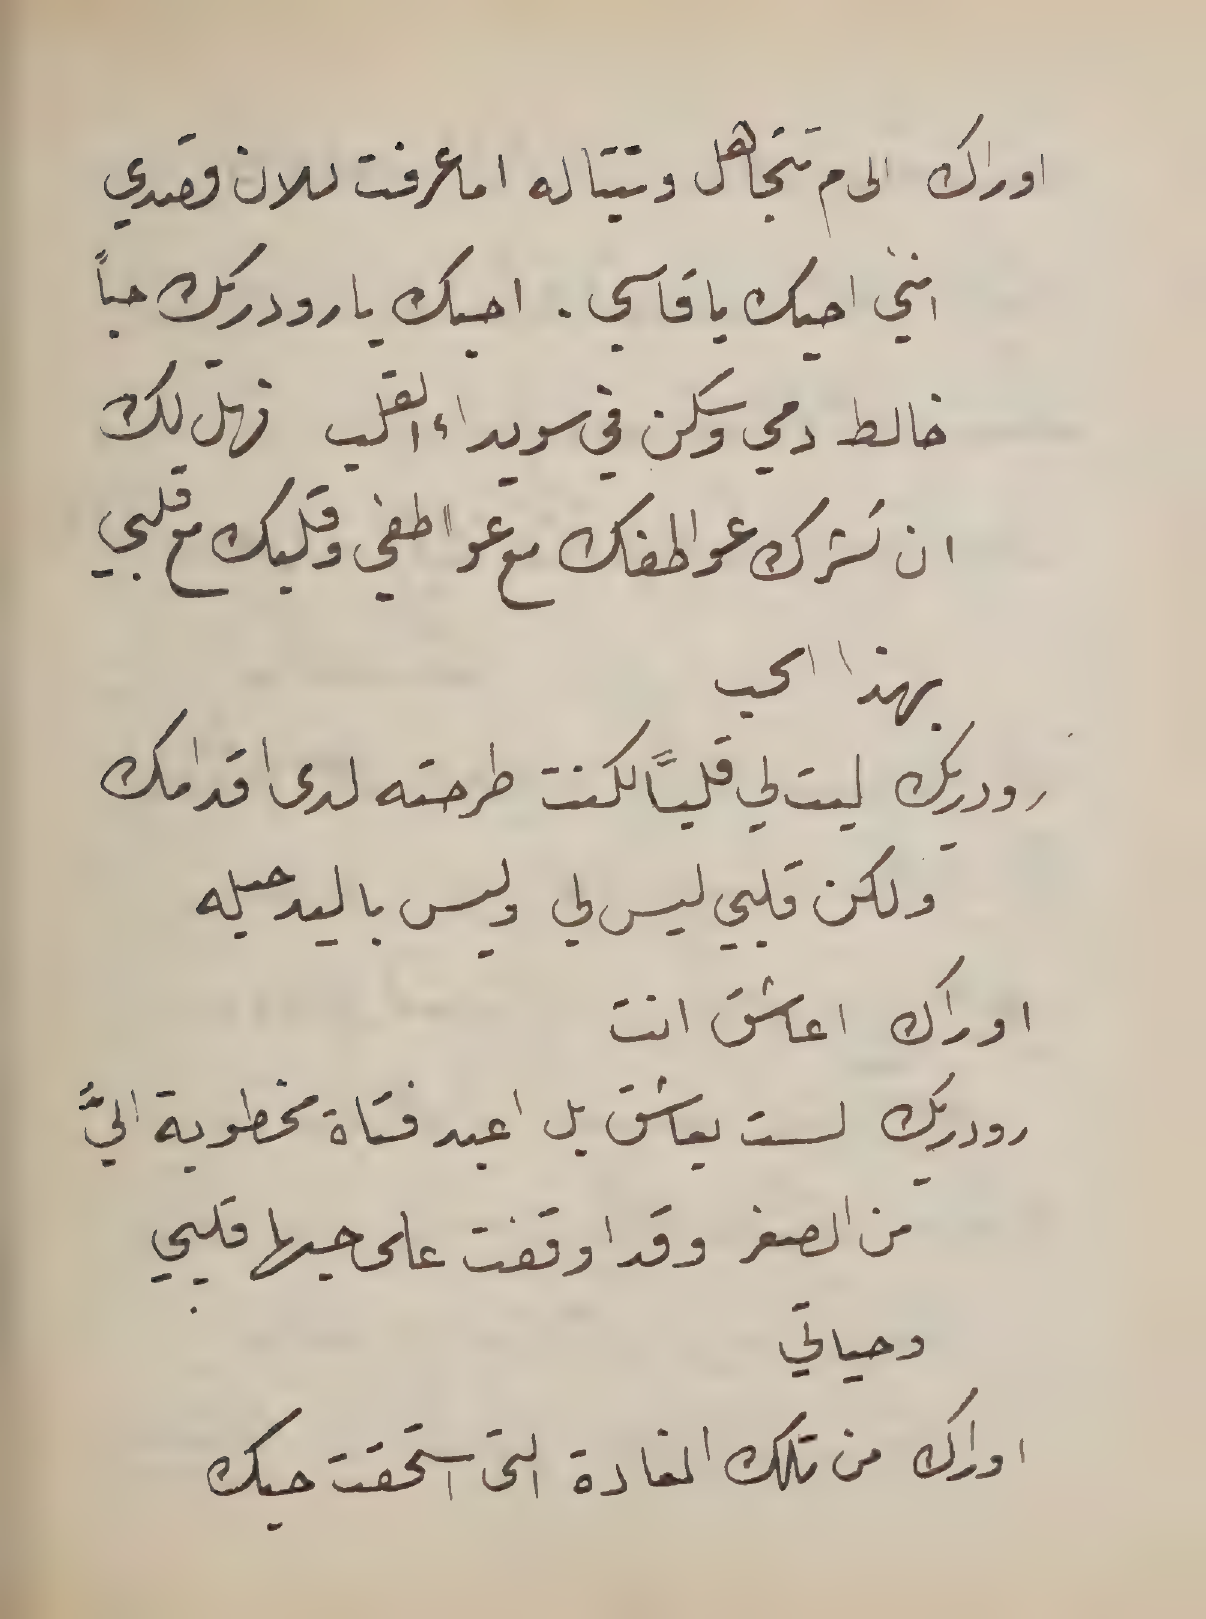 اوراك الى م تتجاهل وتتباله اما عرفت للان قصدي
انني احبك يا قاسي . احبك يا رودريك حباً
خالط دمي وسكن في سويداء القلب فهل لك
ان تشرك عواطفك مع عواطفي وقلبك مع قلبي
بهذا الحب
رودريك ليت لي قلبًا لكنت طرحته لدى اقدامك
ولكن قلبي ليس لي وليس باليد حيله
اوراك اعاشق انت
رودريك لست بعاشق بل اعبد فتاة مخطوبة اليَّ
من الصغر وقد اوقفت على حبها قلبي
وحياتي
اوراك من تلك الغادة التى استحقت حبك